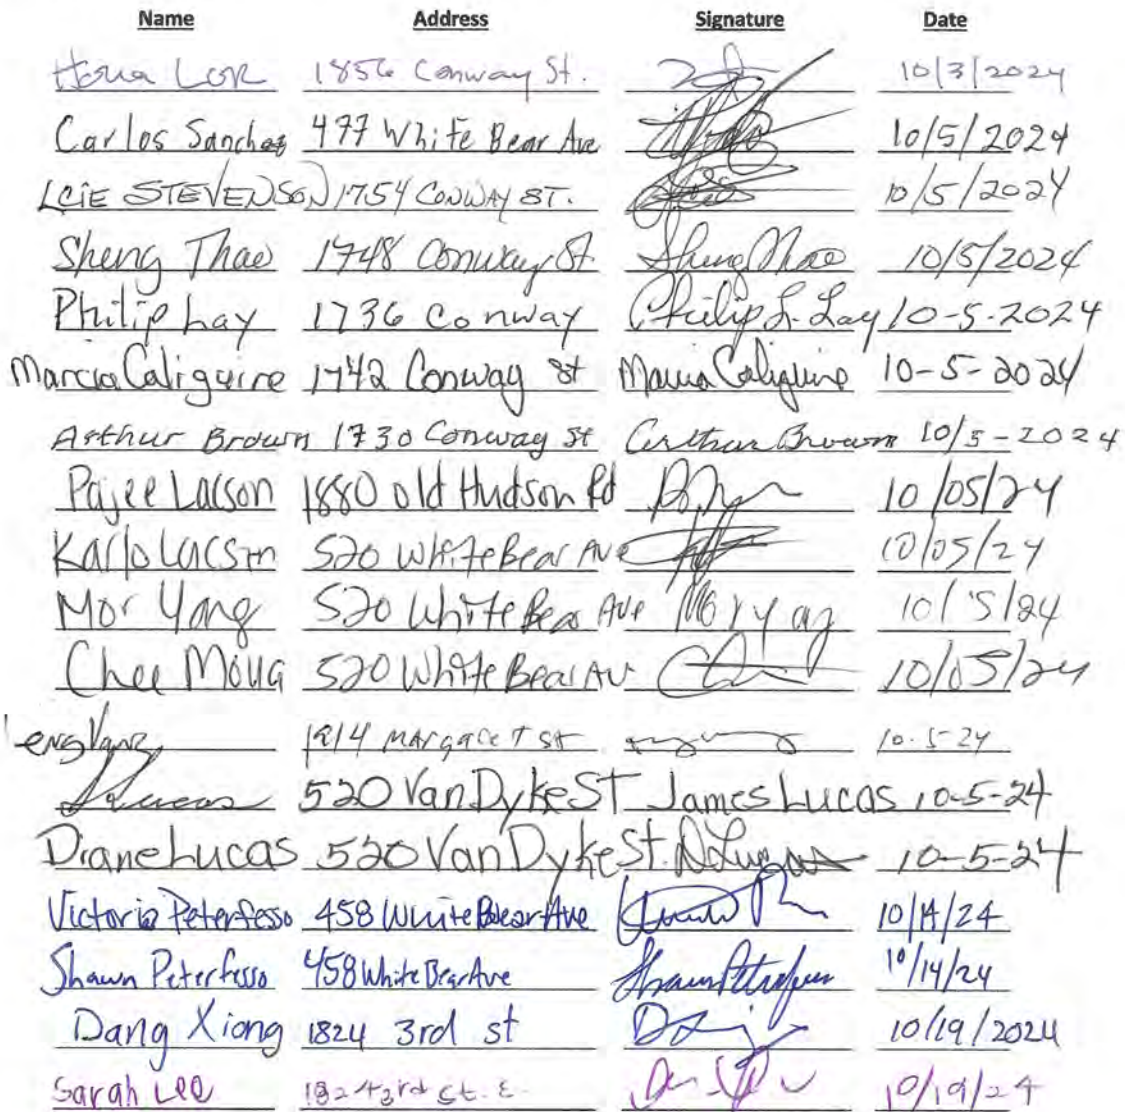 Name Address Signature Date
Lor 1856 Conway St. 10/3/2024
Carlos Sanchez 477 White Bear Ave 10/5/2024
STEVENSON 1754 CONWAY ST. 10/5/2024
Sheng Thao 1748 Conway St Sheng Thao 10/5/2024
Philip Lay 1736 Conway Philip L. Lay 10-5-2024
Marcia Caliguire 1742 Conway St Marcia Caliguire 10-5-2024
Arthur Brown 1730 Conway St Arthur Brown 10/5-2024
Pajee Lacson 1880 Old Hudson Rd 10/05/24
Karlo Lacson 520 White Bear Ave 10/05/24
Mor Yang 520 White Bear Ave Mor Yang 10/5/24
Chee Moua 520 White Bear Av 10/05/24
1914 Margaret St 10-5-24
Lucas 520 Van Dyke ST James Lucas 10-5-24
Diane Lucas 520 Van Dyke St. D Lucas 10-5-24
Victoria Peterfesso 458 White Bear Ave 10/14/24
Shawn Peterfesso 458 White Bear Ave Shawn Peterfesso 10/14/24
Dang Xiong 1824 3rd st 10/19/2024
Sarah Lee 1824 3rd St. E. 10/19/24